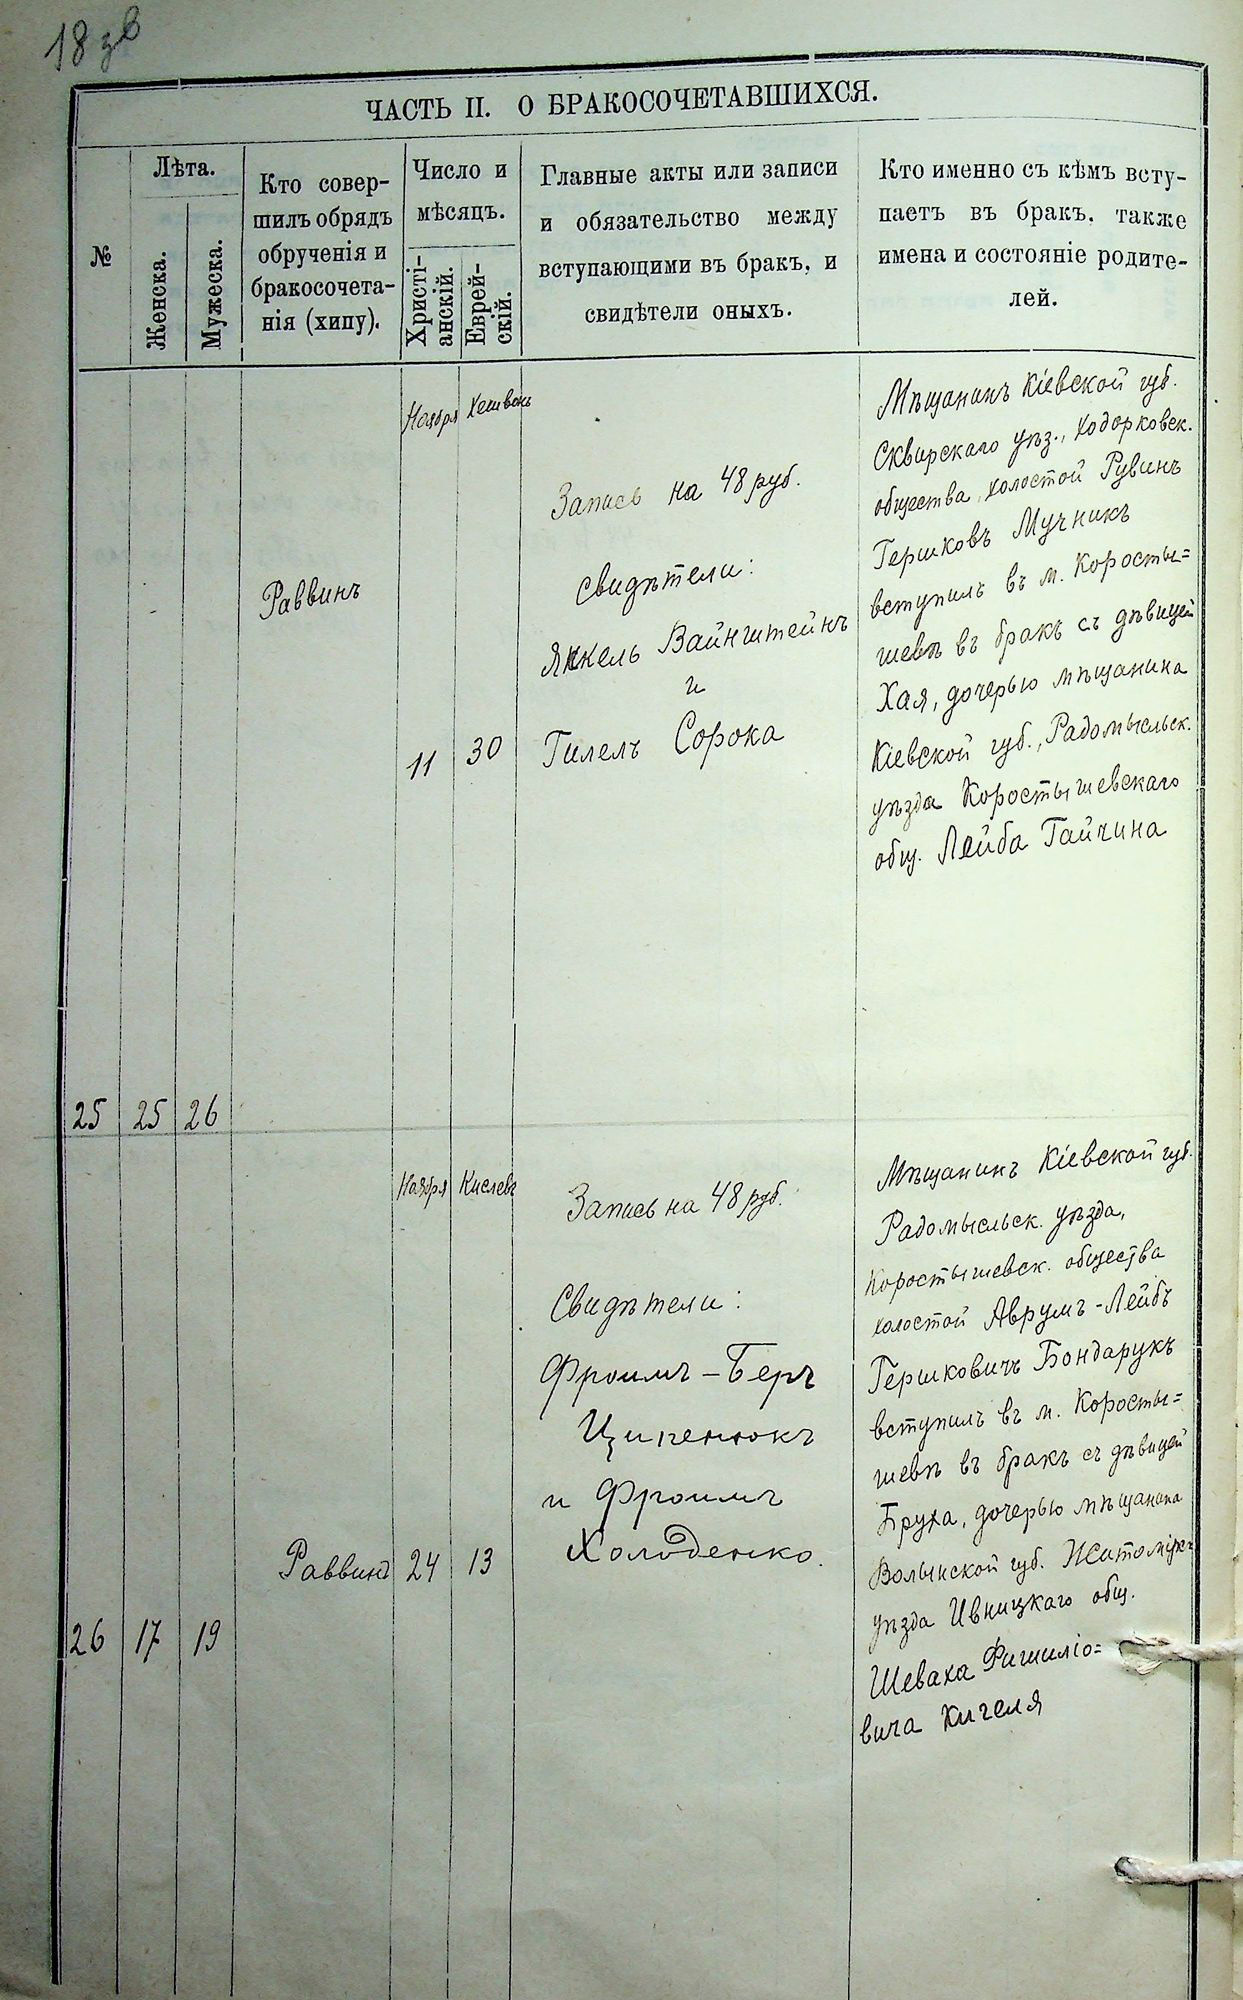 18 зв
ЧАСТЬ II. О БРАКОСОЧЕТАВШИХСЯ.
№
Лѣта.
Женска.
Мужеска.
Кто совер-
шилъ обрядъ
обрученія и
бракосочета-
нія (хипу).
Число и
мѣсяцъ.
Христі-
анскій.
Еврей-
скій.
Главные акты или записи
и обязательство между
вступающими въ бракъ, и
свидѣтели оныхъ.
Кто именно съ кѣмъ всту-
паетъ въ бракъ, также
имена и состояніе родите-
лей.
25
25
26
Раввинъ
Ноября
11
Хешвонъ
30
Запись на 48 руб.
Свидѣтели:
Янкель Вайнштейнъ
и
Гилель Сорока
Мѣщанинъ Кіевской губ.
Сквирскаго уѣз., Ходорковск.
общества, холостой Рувинъ
Гершковъ Мучникъ
вступилъ въ м. Коросты=
шевѣ въ бракъ съ дѣвицей
Хая, дочерью мѣщанина
Кіевской губ., Радомысльск.
уѣзда Коростышевскаго
общ. Лейба Гайчина
26
17
19
Раввинъ
Ноября
24
Кислевъ
13
Запись на 48 руб.
Свидѣтели:
Фроимъ-Беръ
Ципенюкъ
и Фроимъ
Холоденко.
Мѣщанинъ Кіевской губ.
Радомысльск. уѣзда,
Коростышевск. общества
холостой Аврумъ-Лейбъ
Гершковичъ Бондарукъ
вступилъ въ м. Коросты=
шевѣ въ бракъ съ дѣвицей
Бруха, дочерью мѣщанина
Волынской губ. Житомірск
уѣзда Ивницкаго общ.
Шеваха Фишиліо=
вича Кигеля